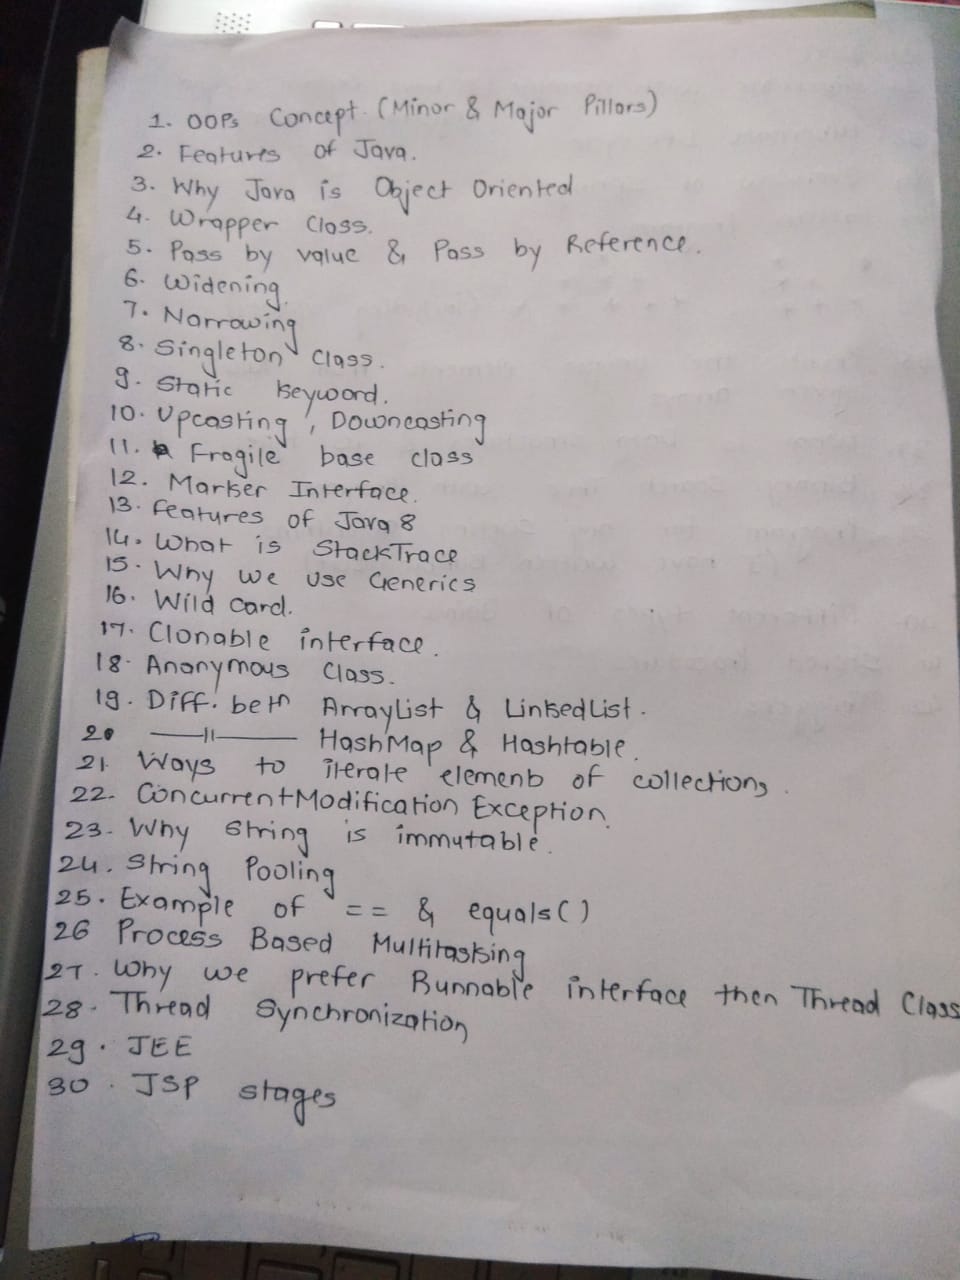 1. OOPs Concept. (Minor & Major Pillars)
2. Features of Java.
3. Why Java is Object Oriented
4. Wrapper Class.
5. Pass by value & Pass by Reference.
6. Widening.
7. Narrowing
8. Singleton Class.
9. Static Keyword.
10. Upcasting, Downcasting
11. Fragile base class
12. Marker Interface.
13. Features of Java 8
14. What is StackTrace
15. Why we use Generics
16. Wild Card.
17. Clonable interface.
18. Ananymous Class.
19. Diff. betn ArrayList & LinkedList.
20 —||— HashMap & Hashtable.
21. Ways to iterate elements of collections.
22. ConcurrentModification Exception.
23. Why String is immutable.
24. String Pooling
25. Example of == & equals()
26 Process Based Multitasking
27. Why we prefer Runnable interface then Thread Class
28. Thread Synchronization
29. JEE
30. JSP stages